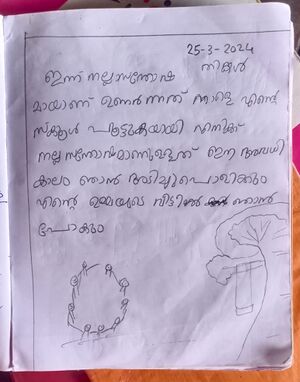 25-3-2024
തിങ്കൾ
ഇന്ന് നല്ല സന്തോഷ
മായാണ് ഉണർന്നത് നാളെ എന്റെ
സ്കൂൾ പൂട്ടുകയായി എനിക്ക്
നല്ല സന്തോഷമാണുള്ളത് ഈ അവധി
കാലം ഞാൻ അടിച്ചുപൊളിക്കും
എന്റെ ഉമ്മയുടെ വീട്ടിൽ ഞാൻ
പോകും